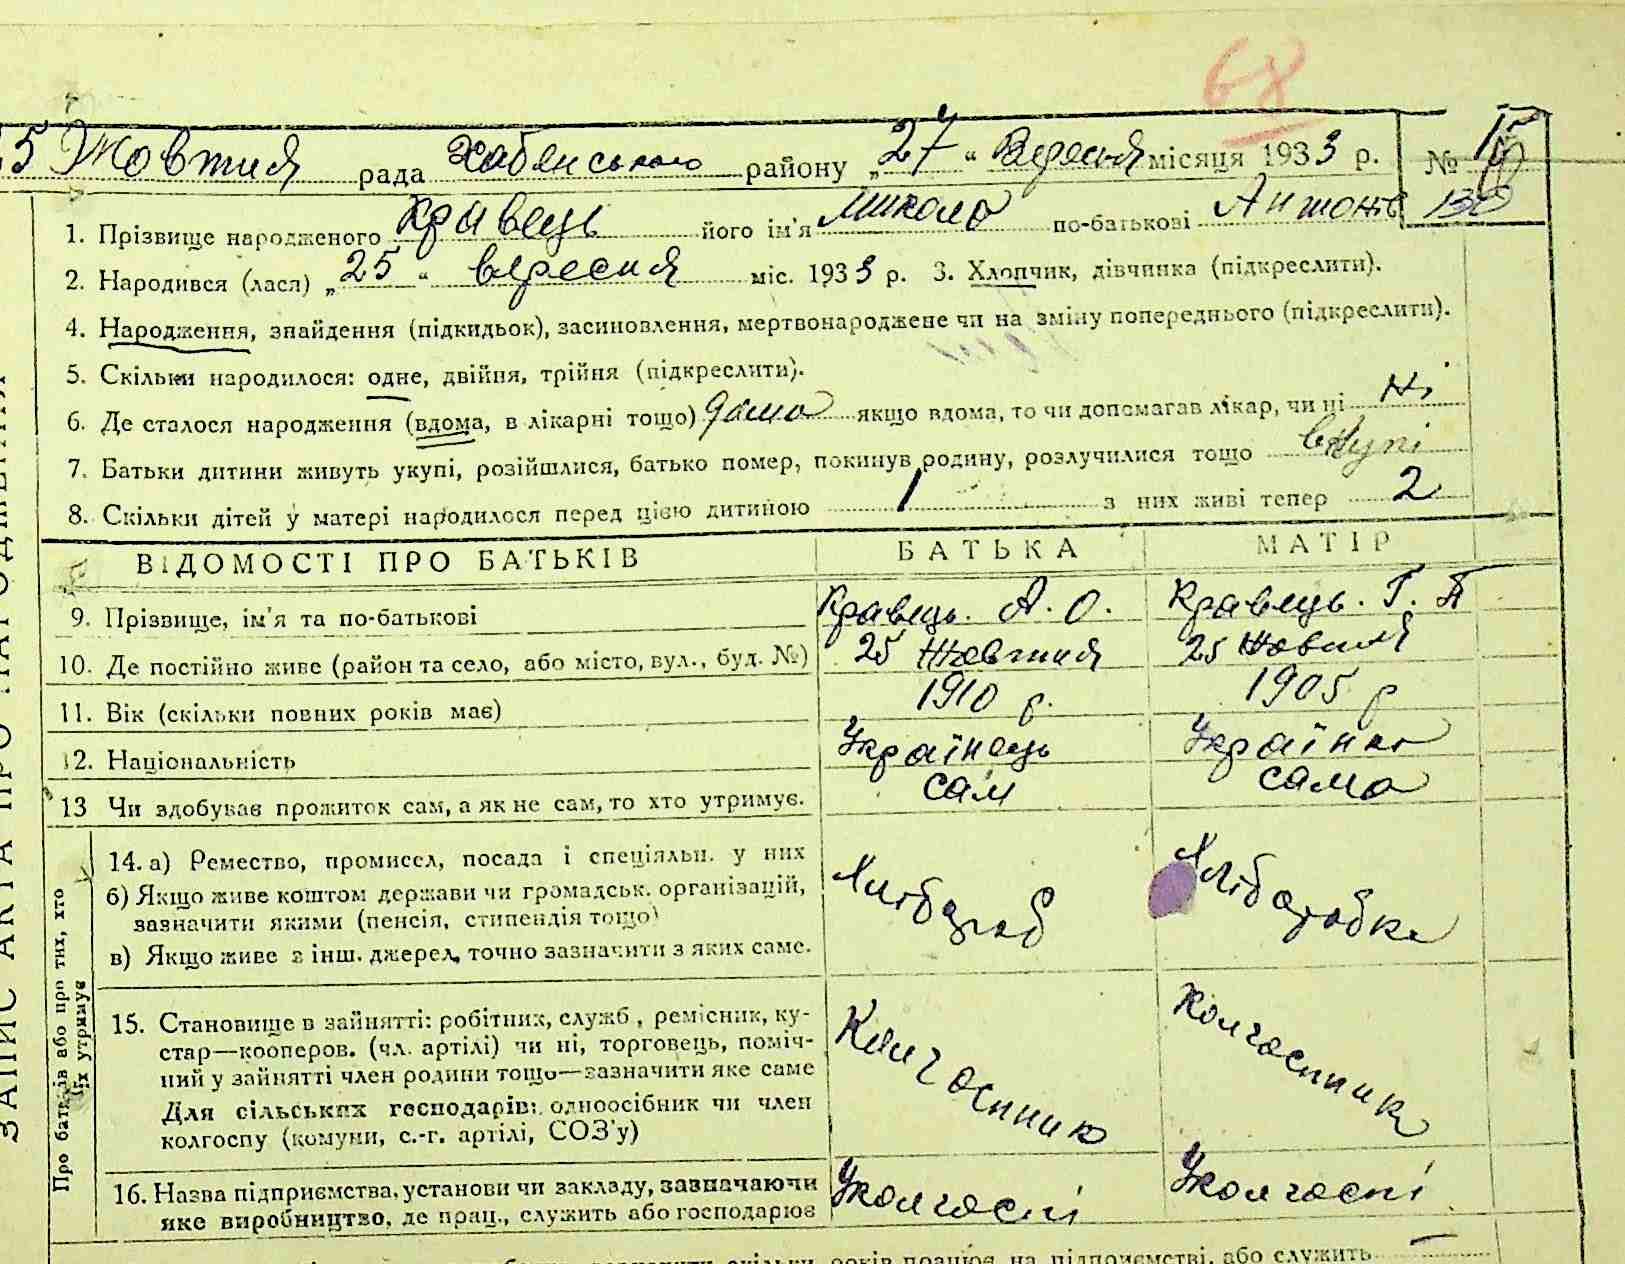 68
25 Жовтня рада Хабенського району „27“ Вересня місяця 1933 р. № 15
130
1. Прізвище народженого Кравець його ім'я Микола по-батькові Антонів
2. Народився (лася) „25“ вересня міс. 1933 р. 3. Хлопчик, дівчинка (підкреслити).
4. Народження, знайдення (підкидьок), засиновлення, мертвонароджене чи на зміну попереднього (підкреслити).
5. Скільки народилося: одне, двійня, трійня (підкреслити).
6. Де сталося народження (вдома, в лікарні тощо) дома якщо вдома, то чи допомагав лікар, чи ні Ні
7. Батьки дитини живуть укупі, розійшлися, батько помер, покинув родину, розлучилися тощо вкупі
8. Скільки дітей у матері народилося перед цією дитиною 1 з них живі тепер 2
ВІДОМОСТІ ПРО БАТЬКІВ БАТЬКА МАТІР
9. Прізвище, ім'я та по-батькові Кравець. А. О. Кравець. Г. П
10. Де постійно живе (район та село, або місто, вул., буд. №) 25 Жовтня 25 Жовтня
11. Вік (скільки повних років має) 1910 р. 1905 р
12. Національність Українець Українка
13 Чи здобуває прожиток сам, а як не сам, то хто утримує. сам сама
14. а) Ремество, промисел, посада і спеціяльн. у них
б) Якщо живе коштом держави чи громадськ. організацій,
зазначити якими (пенсія, стипендія тощо)
в) Якщо живе з інш. джерел, точно зазначити з яких саме.
Хлібороб Хліборобка
15. Становище в зайнятті: робітник, служб., ремісник, ку-
стар—кооперов. (чл. артілі) чи ні, торговець, поміч-
ний у зайнятті член родини тощо—зазначити яке саме
Для сільських господарів: одноосібник чи член
колгоспу (комуни, с.-г. артілі, СОЗ'у)
Колгоспник Колгоспник
16. Назва підприємства, установи чи закладу, зазначаючи
яке виробництво, де прац., служить або господарює
У колгоспі У колгоспі
скільки років працює на підприємстві, або служить
ЗАПИС АКТА ПРО НАРОДЖЕННЯ
Про батьків або про тих, хто
їх утримує